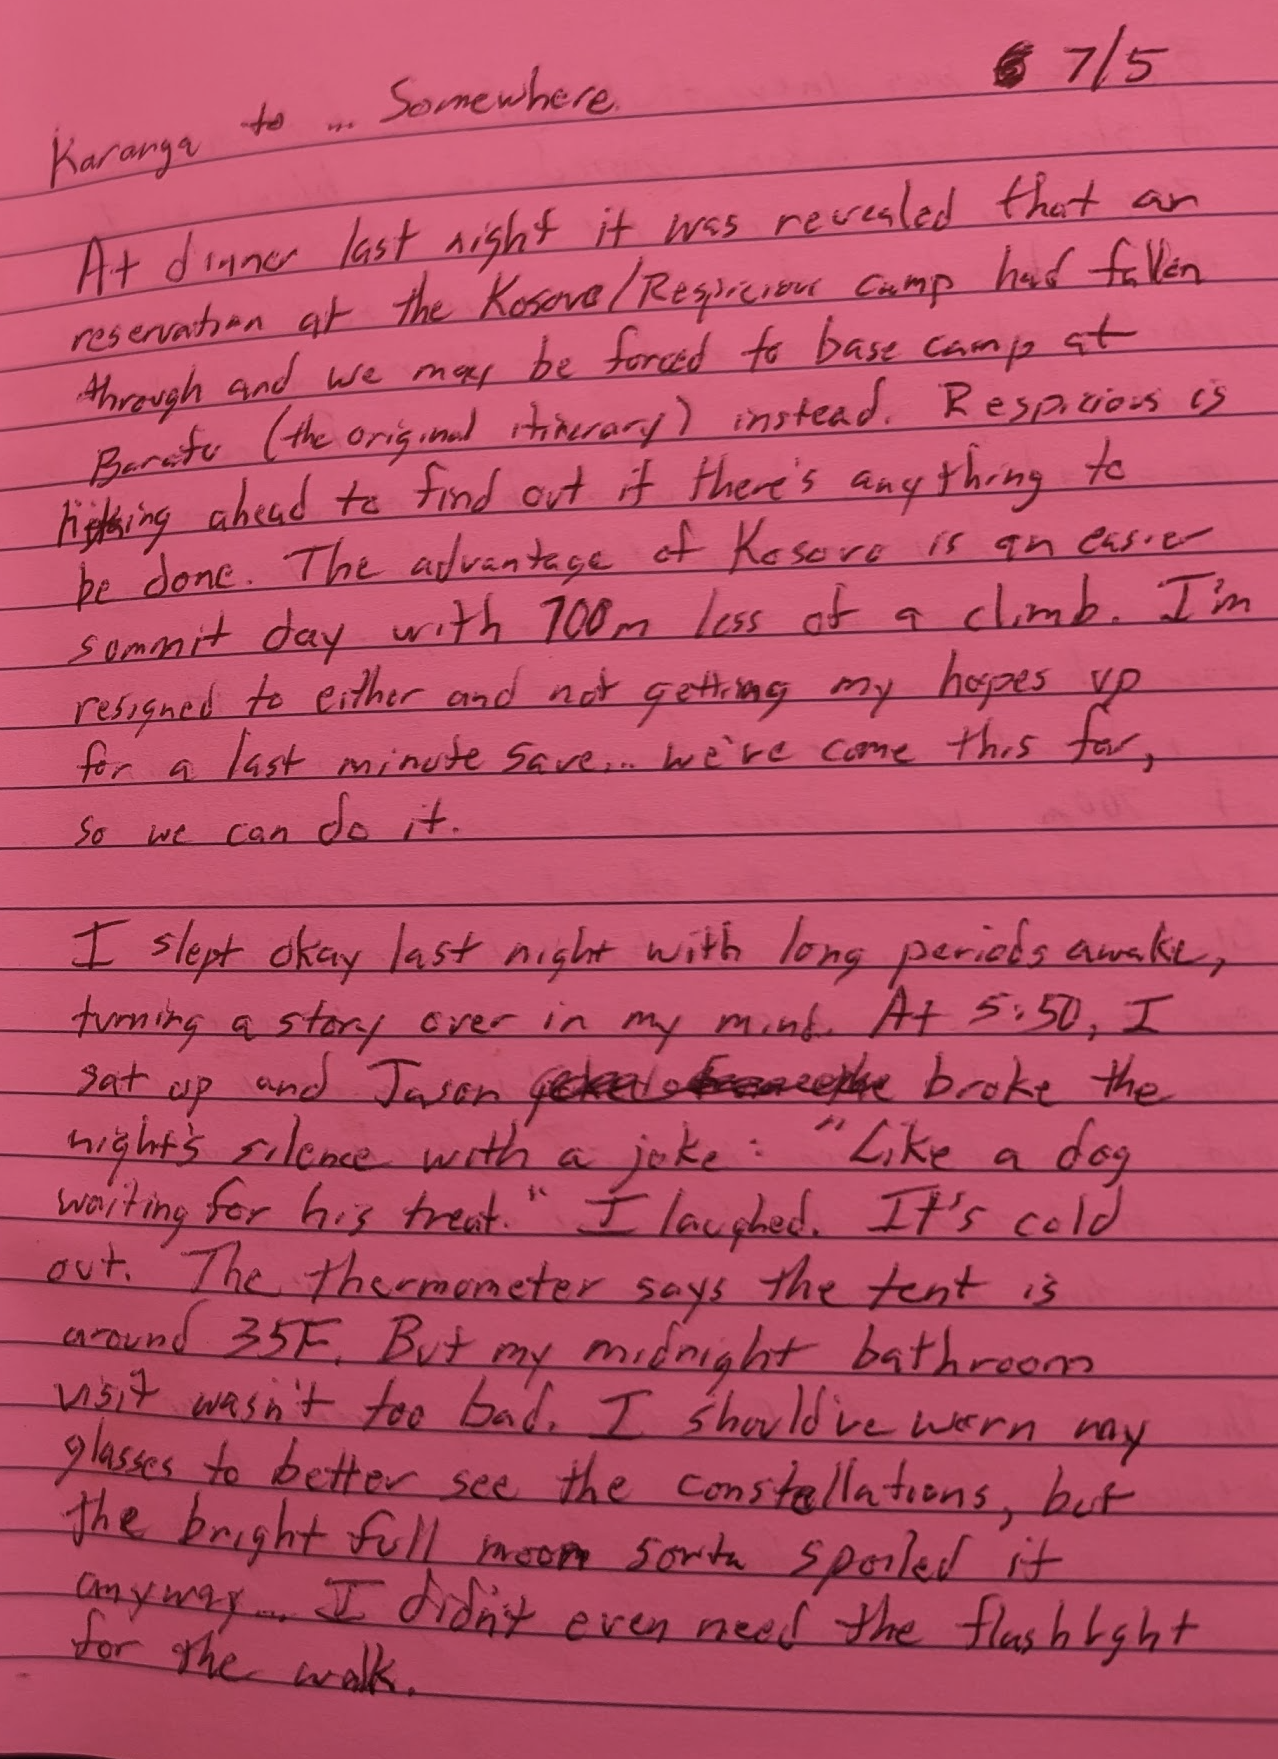 7/5
Karanga to ... Somewhere
At dinner last night it was revealed that an
reservation at the Kosovo/Respicious camp had fallen
through and we may be forced to base camp at
Barafu (the original itinerary) instead. Respicious is
hiking ahead to find out if there's anything to
be done. The advantage of Kosovo is an easier
summit day with 700m less of a climb. I'm
resigned to either and not getting my hopes up
for a last minute save... we've come this far,
so we can do it.
I slept okay last night with long periods awake,
turning a story over in my mind. At 5:50, I
sat up and Jason broke the
night's silence with a joke: "Like a dog
waiting for his treat." I laughed. It's cold
out. The thermometer says the tent is
around 35F. But my midnight bathroom
visit wasn't too bad. I should've worn my
glasses to better see the constellations, but
the bright full moon sorta spoiled it
anyway... I didn't even need the flashlight
for the walk.